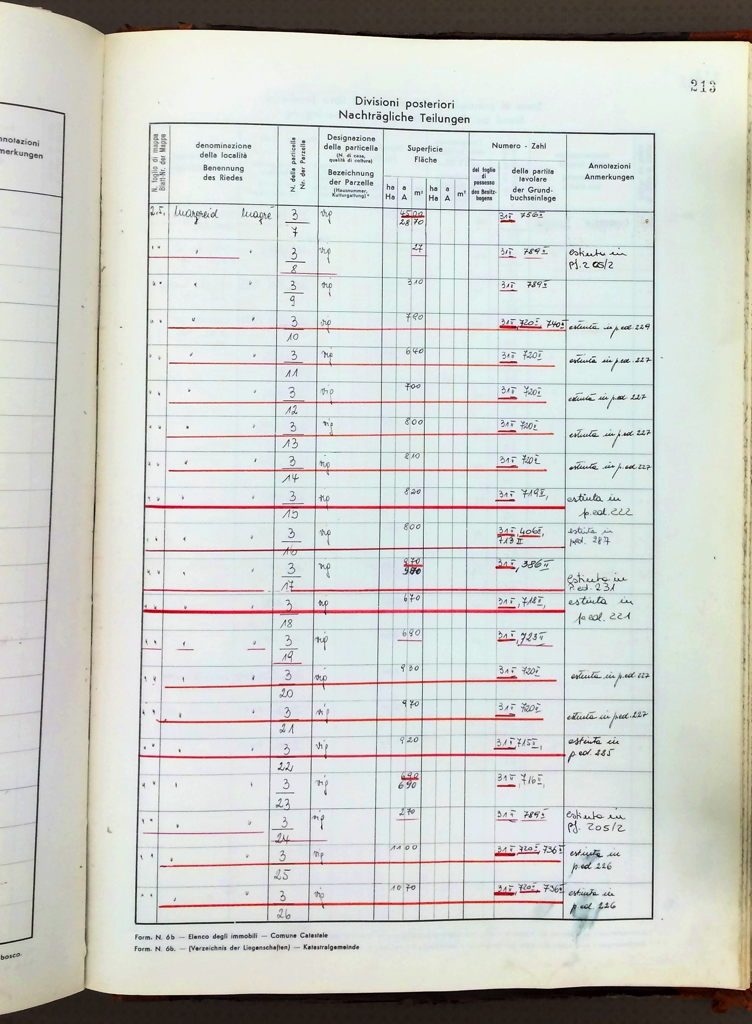 213
nnotazioni
merkungen
Divisioni posteriori
Nachträgliche Teilungen
N. foglio di mappa
Blatt-Nr. der Mappe
denominazione
della località
Benennung
des Riedes
N. della particella
Nr. der Parzelle
Designazione
della particella
(N. di casa,
qualità di coltura)
Bezeichnung
der Parzelle
(Hausnummer,
Kulturgattung)
Superficie
Fläche
ha Ha a A m² ha Ha a A m²
Numero - Zahl
del foglio
di
possesso
des Besitz-
bogens
della partita
tavolare
der Grund-
buchseinlage
Annotazioni
Anmerkungen
2.I. Margreid Magrè 3/7 vig 4500 2870 31I 756I
" " " 3/8 vig 27 31I 789I estinta in p.f. 205/2
" " " 3/9 vig 310 31I 789I
" " " 3/10 vig 790 31I, 720I, 740I estinta in p.ed. 229
" " " 3/11 vig 640 31I 720I estinta in p.ed. 227
" " " 3/12 vig 700 31I 720I estinta in p.ed. 227
" " " 3/13 vig 800 31I 720I estinta in p.ed. 227
" " " 3/14 vig 810 31I 720I estinta in p.ed. 227
" " " 3/15 vig 820 31I 719I, estinta in p.ed. 222
" " " 3/16 vig 800 31I, 406II, 713II estinta in p.ed. 287
" " " 3/17 vig 870 31I, 386II estinta in p.ed. 231
" " " 3/18 vig 670 31I, 718I, estinta in p.ed. 221
" " " 3/19 vig 690 31I, 723I
" " " 3/20 vig 930 31I 720I estinta in p.ed. 227
" " " 3/21 vig 970 31I 720I estinta in p.ed. 227
" " " 3/22 vig 920 31I 715I, estinta in p.ed. 225
" " " 3/23 vig 690 690 31I, 716I,
" " " 3/24 vig 270 31I 789I estinta in p.f. 205/2
" " " 3/25 vig 1100 31I, 720I, 736I estinta in p.ed 226
" " " 3/26 vig 1070 31I, 720I, 736I estinta in p.ed. 226
Form. N. 6b — Elenco degli immobili — Comune Catastale
Form. N. 6b. — (Verzeichnis der Liegenschaften) — Katastralgemeinde
bosco.